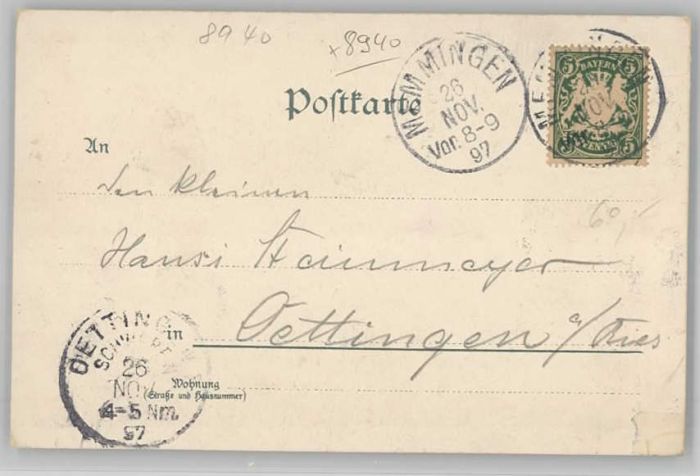 8940
x8940
MEMMINGEN
26
NOV.
Vor. 8-9
97
BAYERN
5 5
5 PFENNIG 5
Postkarte
An
den kleinen
60,-
Hansi Steinmeyer
in Oettingen a/Ries
Wohnung
(Straße und Hausnummer)
OETTING
26
NOV
4-5 Nm.
97